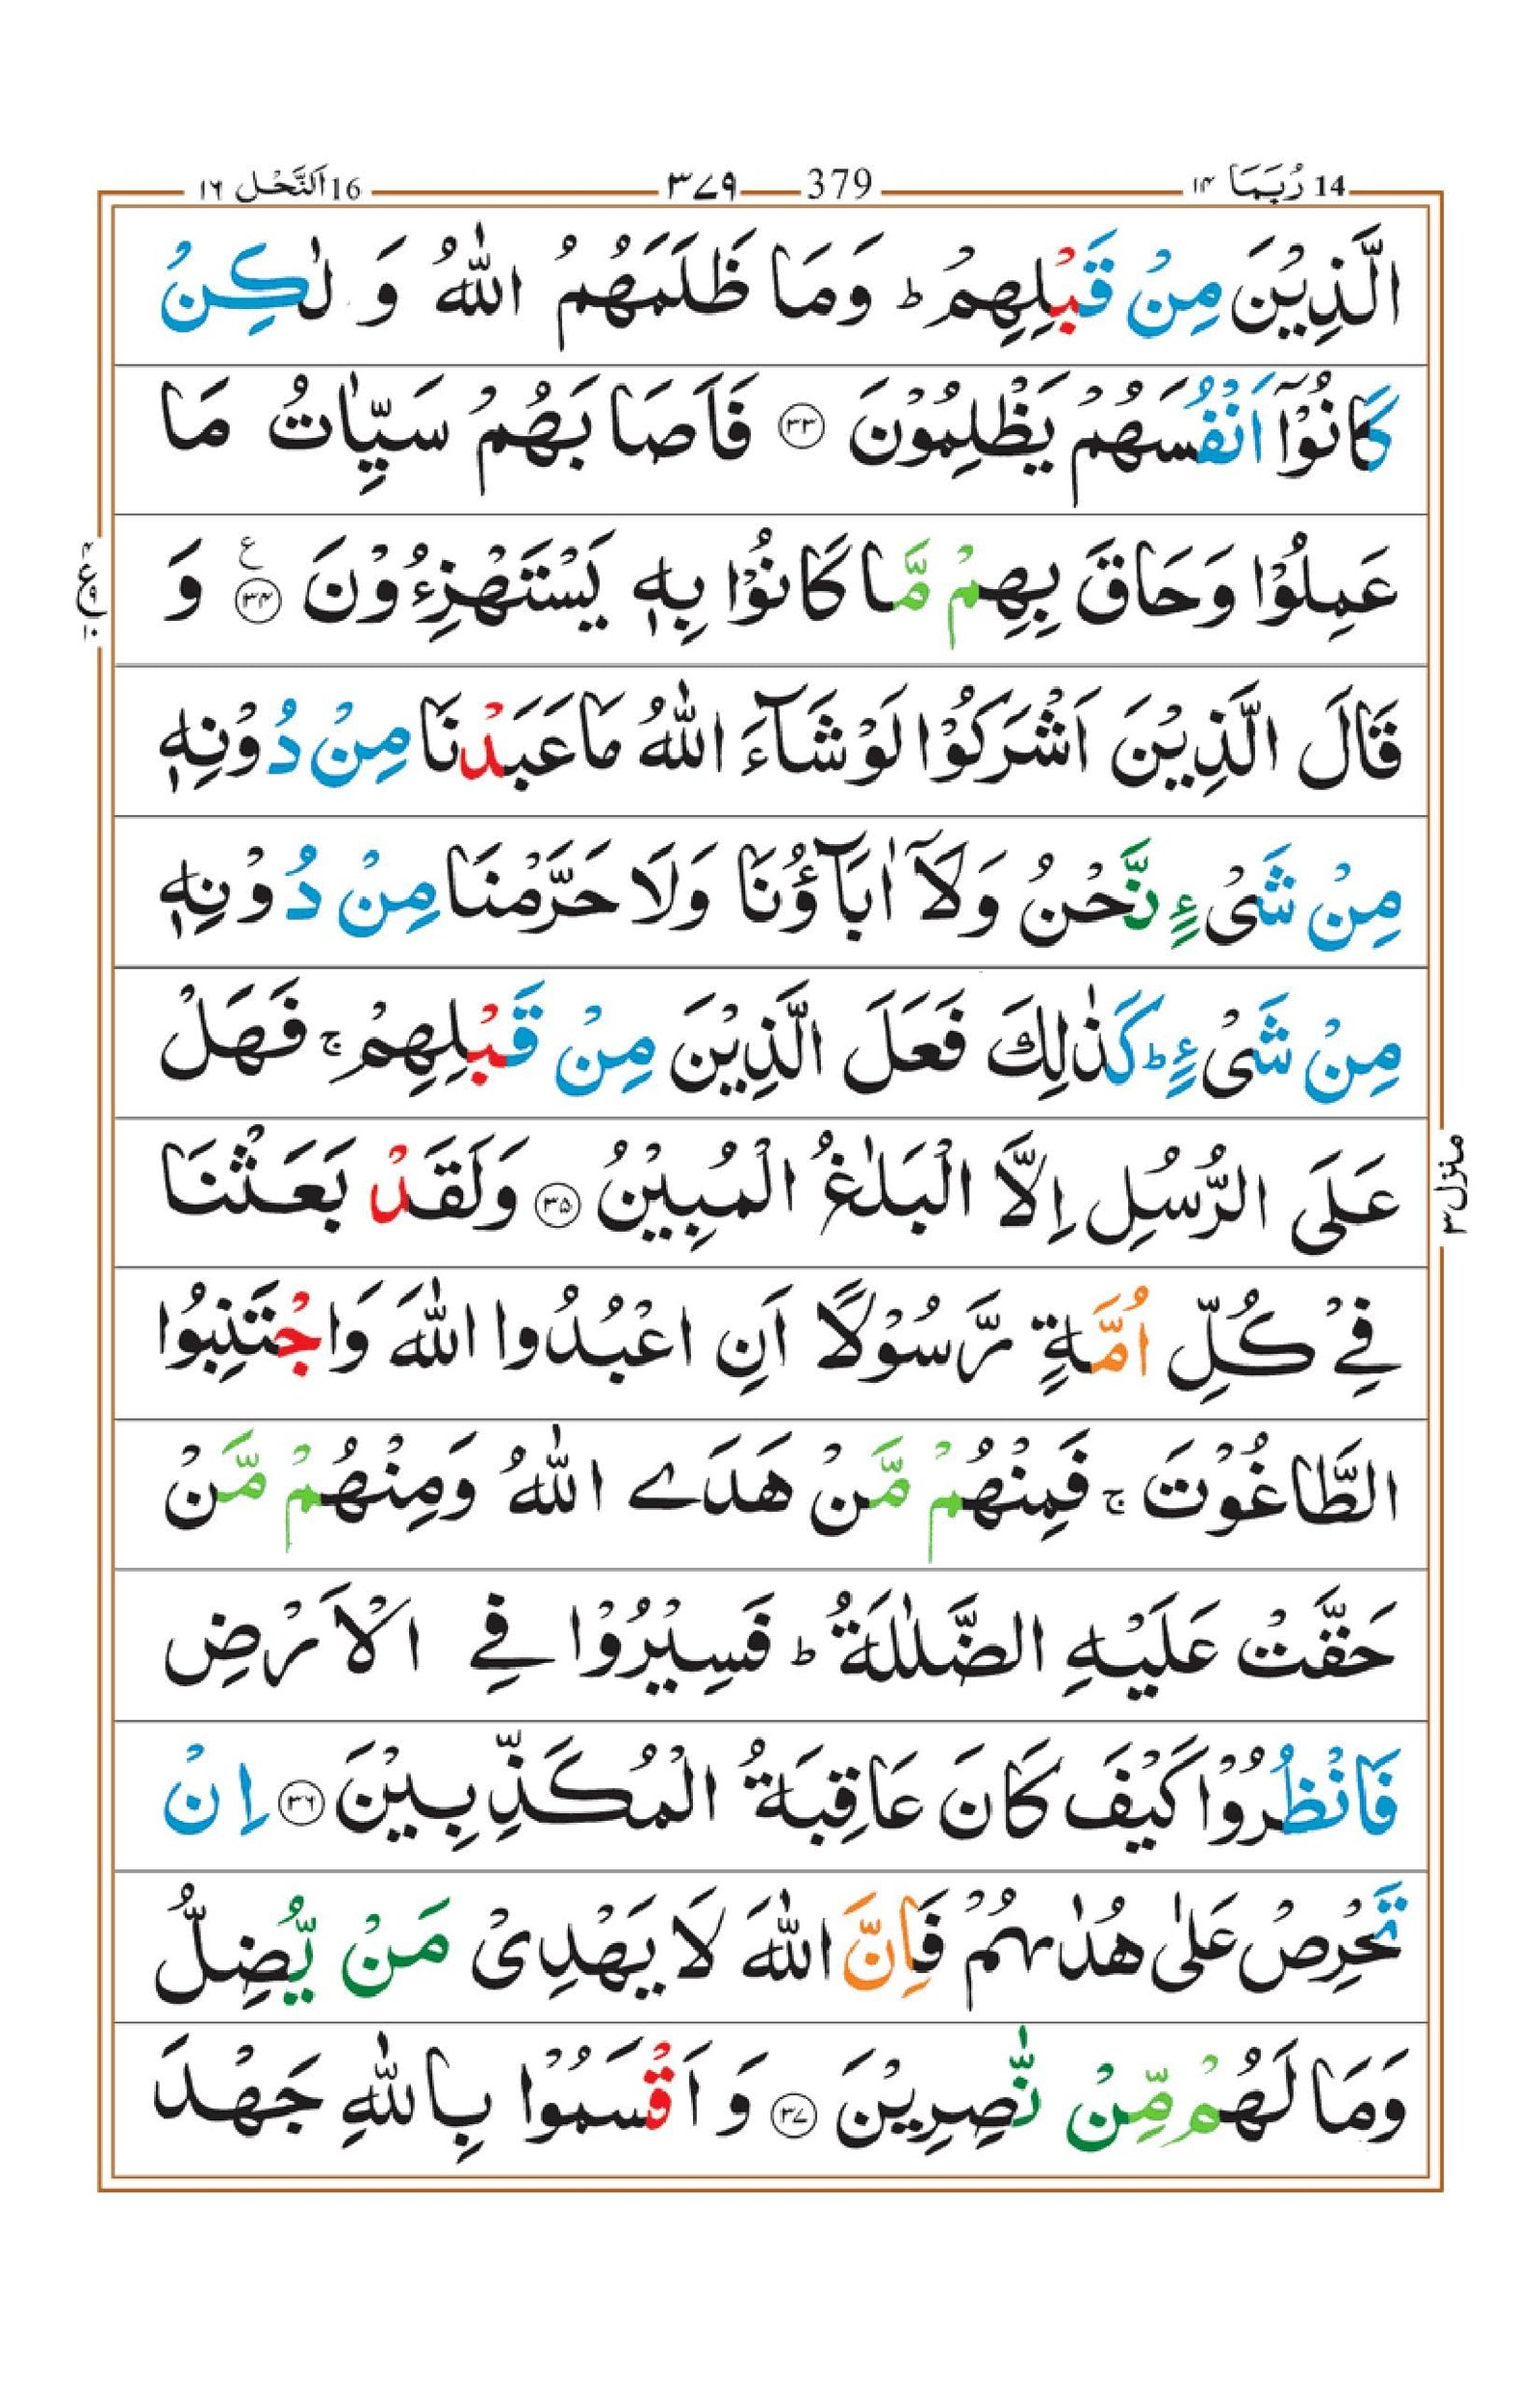 14 رُبَمَا ۱۴
379 ۳۷۹
16 اَلنَّحْل ۱۶
الَّذِیْنَ مِنْ قَبْلِهِمْ ؕ وَمَا ظَلَمَهُمُ اللّٰهُ وَ لٰكِنْ
كَانُوْۤا اَنْفُسَهُمْ یَظْلِمُوْنَ ﴿۳۳﴾ فَاَصَابَهُمْ سَیِّاٰتُ مَا
عَمِلُوْا وَحَاقَ بِهِمْ مَّا كَانُوْا بِهٖ یَسْتَهْزِءُوْنَ ﴿۳۴﴾ ع وَ
قَالَ الَّذِیْنَ اَشْرَكُوْا لَوْ شَآءَ اللّٰهُ مَا عَبَدْنَا مِنْ دُوْنِهٖ
مِنْ شَیْءٍ نَّحْنُ وَلَاۤ اٰبَآؤُنَا وَلَا حَرَّمْنَا مِنْ دُوْنِهٖ
مِنْ شَیْءٍ ؕ كَذٰلِكَ فَعَلَ الَّذِیْنَ مِنْ قَبْلِهِمْ ۚ فَهَلْ
عَلَی الرُّسُلِ اِلَّا الْبَلٰغُ الْمُبِیْنُ ﴿۳۵﴾ وَلَقَدْ بَعَثْنَا
فِیْ كُلِّ اُمَّةٍ رَّسُوْلًا اَنِ اعْبُدُوا اللّٰهَ وَاجْتَنِبُوا
الطَّاغُوْتَ ۚ فَمِنْهُمْ مَّنْ هَدَی اللّٰهُ وَمِنْهُمْ مَّنْ
حَقَّتْ عَلَیْهِ الضَّلٰلَةُ ؕ فَسِیْرُوْا فِی الْاَرْضِ
فَانْظُرُوْا كَیْفَ كَانَ عَاقِبَةُ الْمُكَذِّبِیْنَ ﴿۳۶﴾ اِنْ
تَحْرِصْ عَلٰی هُدٰىهُمْ فَاِنَّ اللّٰهَ لَا یَهْدِیْ مَنْ یُّضِلُّ
وَمَا لَهُمْ مِّنْ نّٰصِرِیْنَ ﴿۳۷﴾ وَ اَقْسَمُوْا بِاللّٰهِ جَهْدَ
۴ ع ۹ ۱۰
منزل ۳